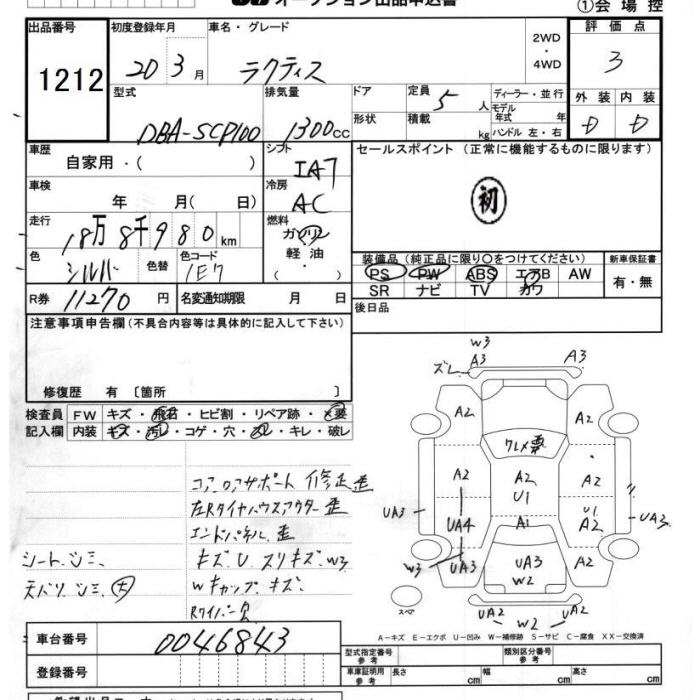 オークション出品申込書
①会場控
出品番号
1212
初度登録年月
20 3月
車名・グレード
ラクティス
2WD
・
4WD
評価点
3
型式
DBA-SCP100
排気量
1300cc
ドア
形状
定員
5人
積載
kg
ディーラー・並行
モデル年式 年
ハンドル 左・右
外装 内装
D D
車歴
自家用・( )
シフト
IA7
セールスポイント (正常に機能するものに限ります)
初
車検
年 月( 日)
冷房
AC
走行
18万8千980km
燃料
ガソリン
・
軽油
( )
色
シルバ
色替
色コード
1E7
装備品(純正品に限り○をつけてください)
PS PW ABS エアB AW
SR ナビ TV カワ
新車保証書
有・無
R券 11270円
名変通知期限 月 日
後日品
注意事項申告欄(不具合内容等は具体的に記入して下さい)
修復歴 有〔箇所 〕
検査員
記入欄
FW キズ・飛石・ヒビ割・リペア跡・×要
内装 キズ・汚レ・コゲ・穴・スレ・キレ・破レ
コアロアサポート 修正歪
左Rタイヤハウスアウター 歪
エンドパネル 歪
シートシミ
キズ U スリキズ W3
天バリシミ 大
Wキャップ キズ
Rワイパー欠
W3
ズレ A3
A3
A2
A2
フレメ票
A2
A2
U1
A2
UA3
UA4
A1
U1
A2
UA3
W3
UA3
UA3
W2
A2
スペア
UA2
W2
UA2
A−キズ E−エクボ U−凹み W−補修跡 S−サビ C−腐食 XX−交換済
車台番号
0046843
登録番号
型式指定番号
参考
類別区分番号
参考
車庫証明用
参考
長さ cm
幅 cm
高さ cm